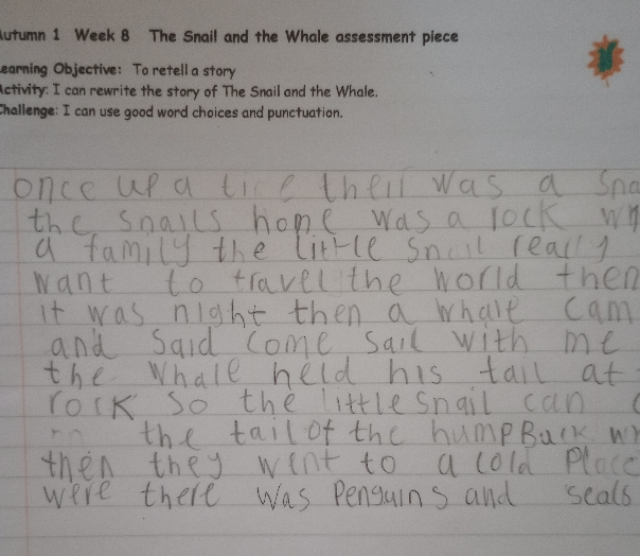 Autumn 1 Week 8 The Snail and the Whale assessment piece
Learning Objective: To retell a story
Activity: I can rewrite the story of The Snail and the Whale.
Challenge: I can use good word choices and punctuation.
once up a was a Sna
the snails home was a rock
a family the little snail really
want to travel the world then
it was night then a whale cam
and said come sail with me
the whale held his tail at
rock so the little snail can
the tail of the humpBack
then they went to a cold Place
were there was Penguins and seals